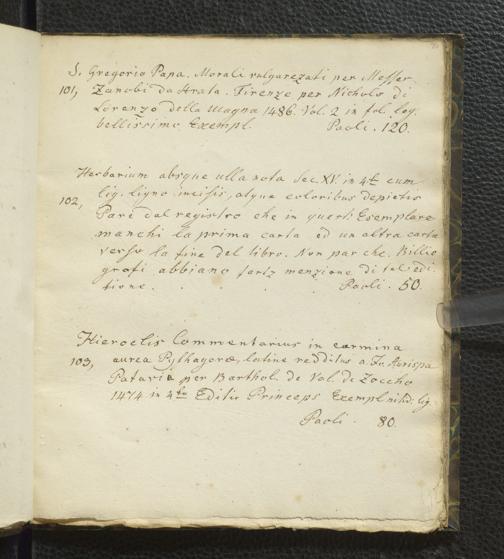 S. Gregorio Papa. Morali vulgarezati per Messer
101, Zanobi da Strata. Firenze per Nicholo di
Lorenzo della Magna 1486. Vol. 2 in fol. leg.
bellissimo Exempl. Paoli. 120.
Herbarium absque ulla nota Sec. XV. in 4to cum
fig. ligno incisis, atque coloribus depictis
102, Pare dal registro che in questi Esemplare
manchi la prima carta ed un altra carta
verso la fine del libro. Non par che Biblio
grafi abbiano fatta menzione di tal edi
tione. Paoli. 50.
Hieroclis Commentarius in carmina
103, aurea Pythagoræ, latine redditus a Jo. Aurispa
Patavii per Barthol. de Val. de Zoccho
1474 in 4to Editio Princeps Exempl. nitid. lig.
Paoli. 80.